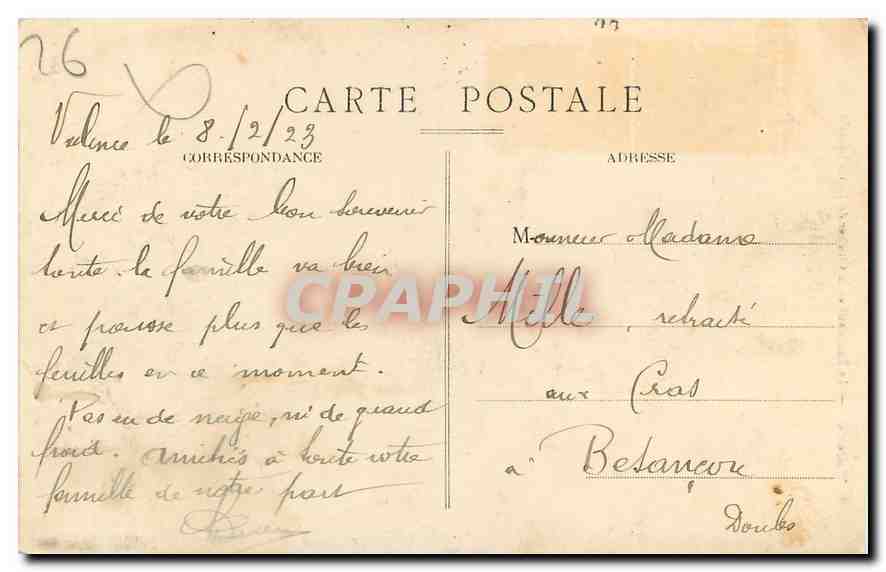 26
CARTE POSTALE
Valence le 8/2/23
CORRESPONDANCE
Merci de votre bon souvenir
toute la famille va bien
et pousse plus que les
feuilles en ce moment.
Pas eu de neige, ni de grand
froid. Amitiés à toute votre
famille de notre part
ADRESSE
Monsieur Madame
Mille, retraité
aux Cras
à Besançon
Doubs
CPAPHIL